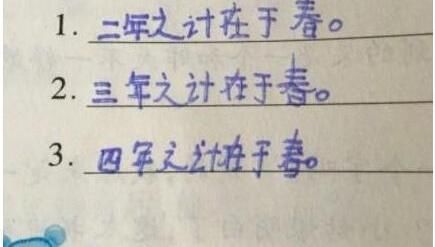 1. 二年之计在于春。
2. 三年之计在于春。
3. 四年之计在于春。